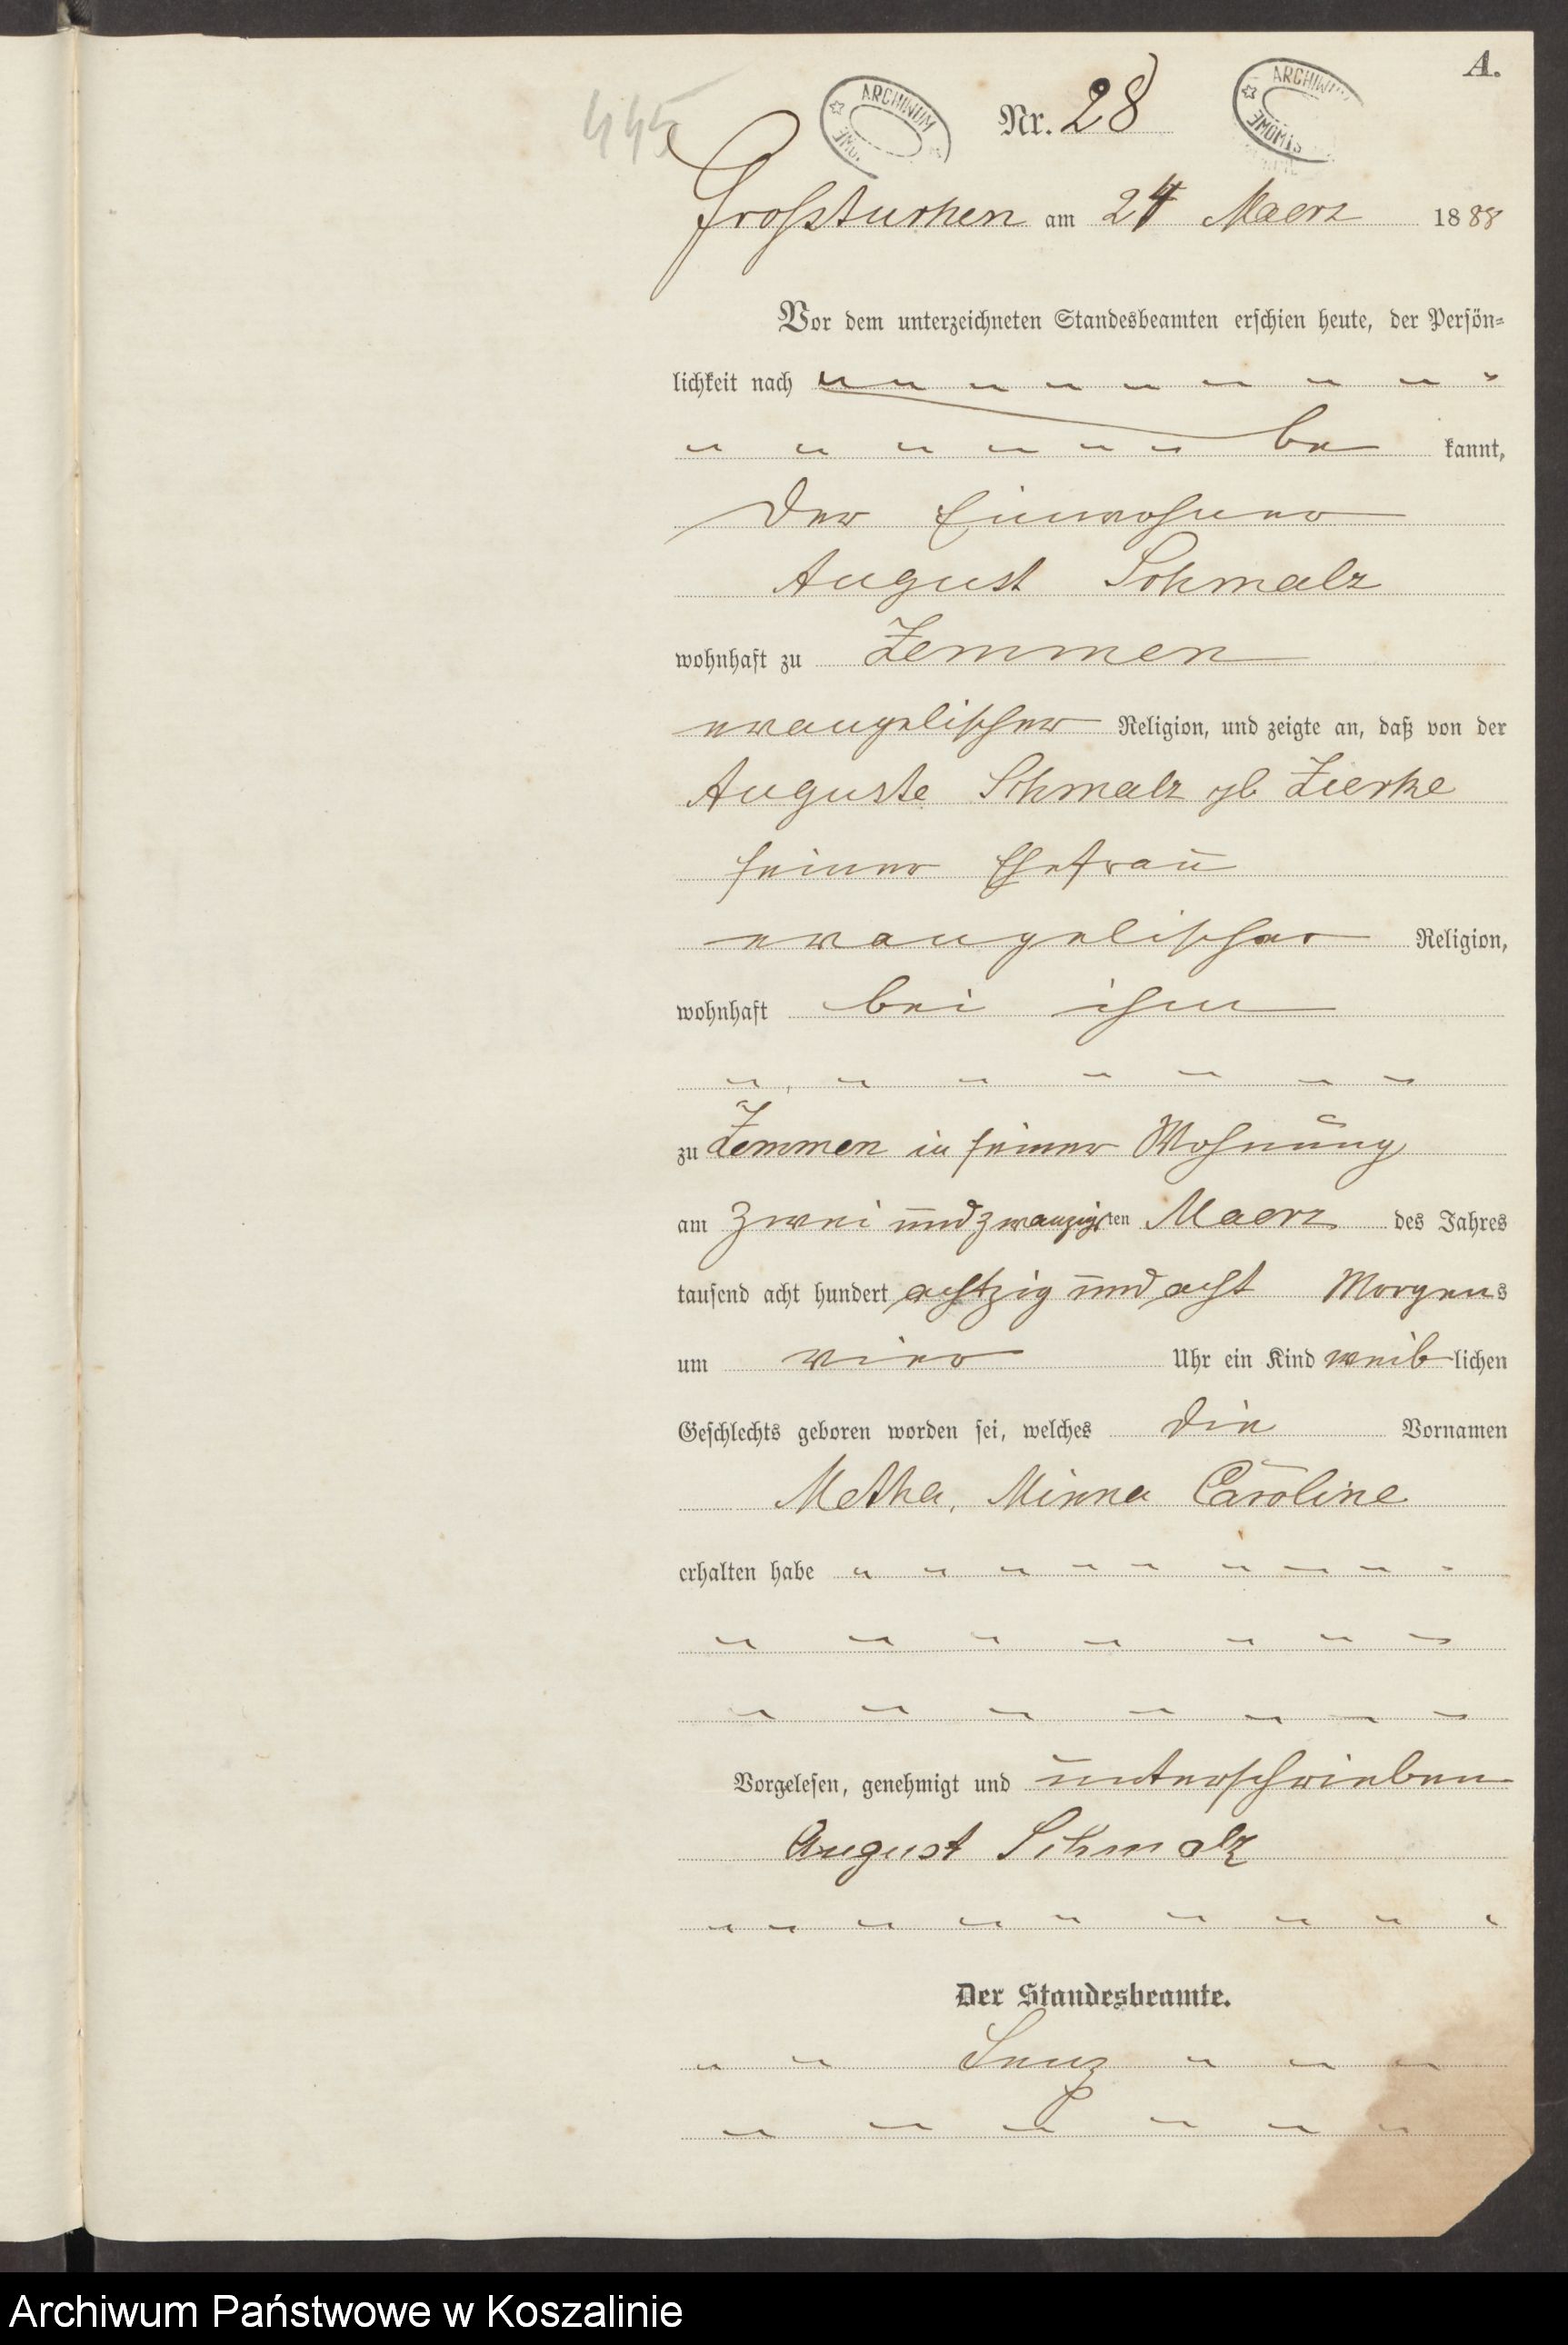 A.
445
ARCHIWUM
Nr. 28)
ARCHIWUM
Großtuchen am 24 Maerz 1888
Vor dem unterzeichneten Standesbeamten erschien heute, der Persön-
lichkeit nach
be kannt,
der Einwohner
August Schmalz
wohnhaft zu Zemmen
evangelischer Religion, und zeigte an, daß von der
Auguste Schmalz gb Zierke
seiner Ehefrau
evangelischer Religion,
wohnhaft bei ihm
zu Zemmen in seiner Wohnung
am zwei und zwanzigsten Maerz des Jahres
tausend acht hundert achtzig und acht Morgens
um vier Uhr ein Kind weiblichen
Geschlechts geboren worden sei, welches die Vornamen
Metha, Minna Caroline
erhalten habe
Vorgelesen, genehmigt und unterschrieben
August Schmalz
Der Standesbeamte.
Archiwum Państwowe w Koszalinie